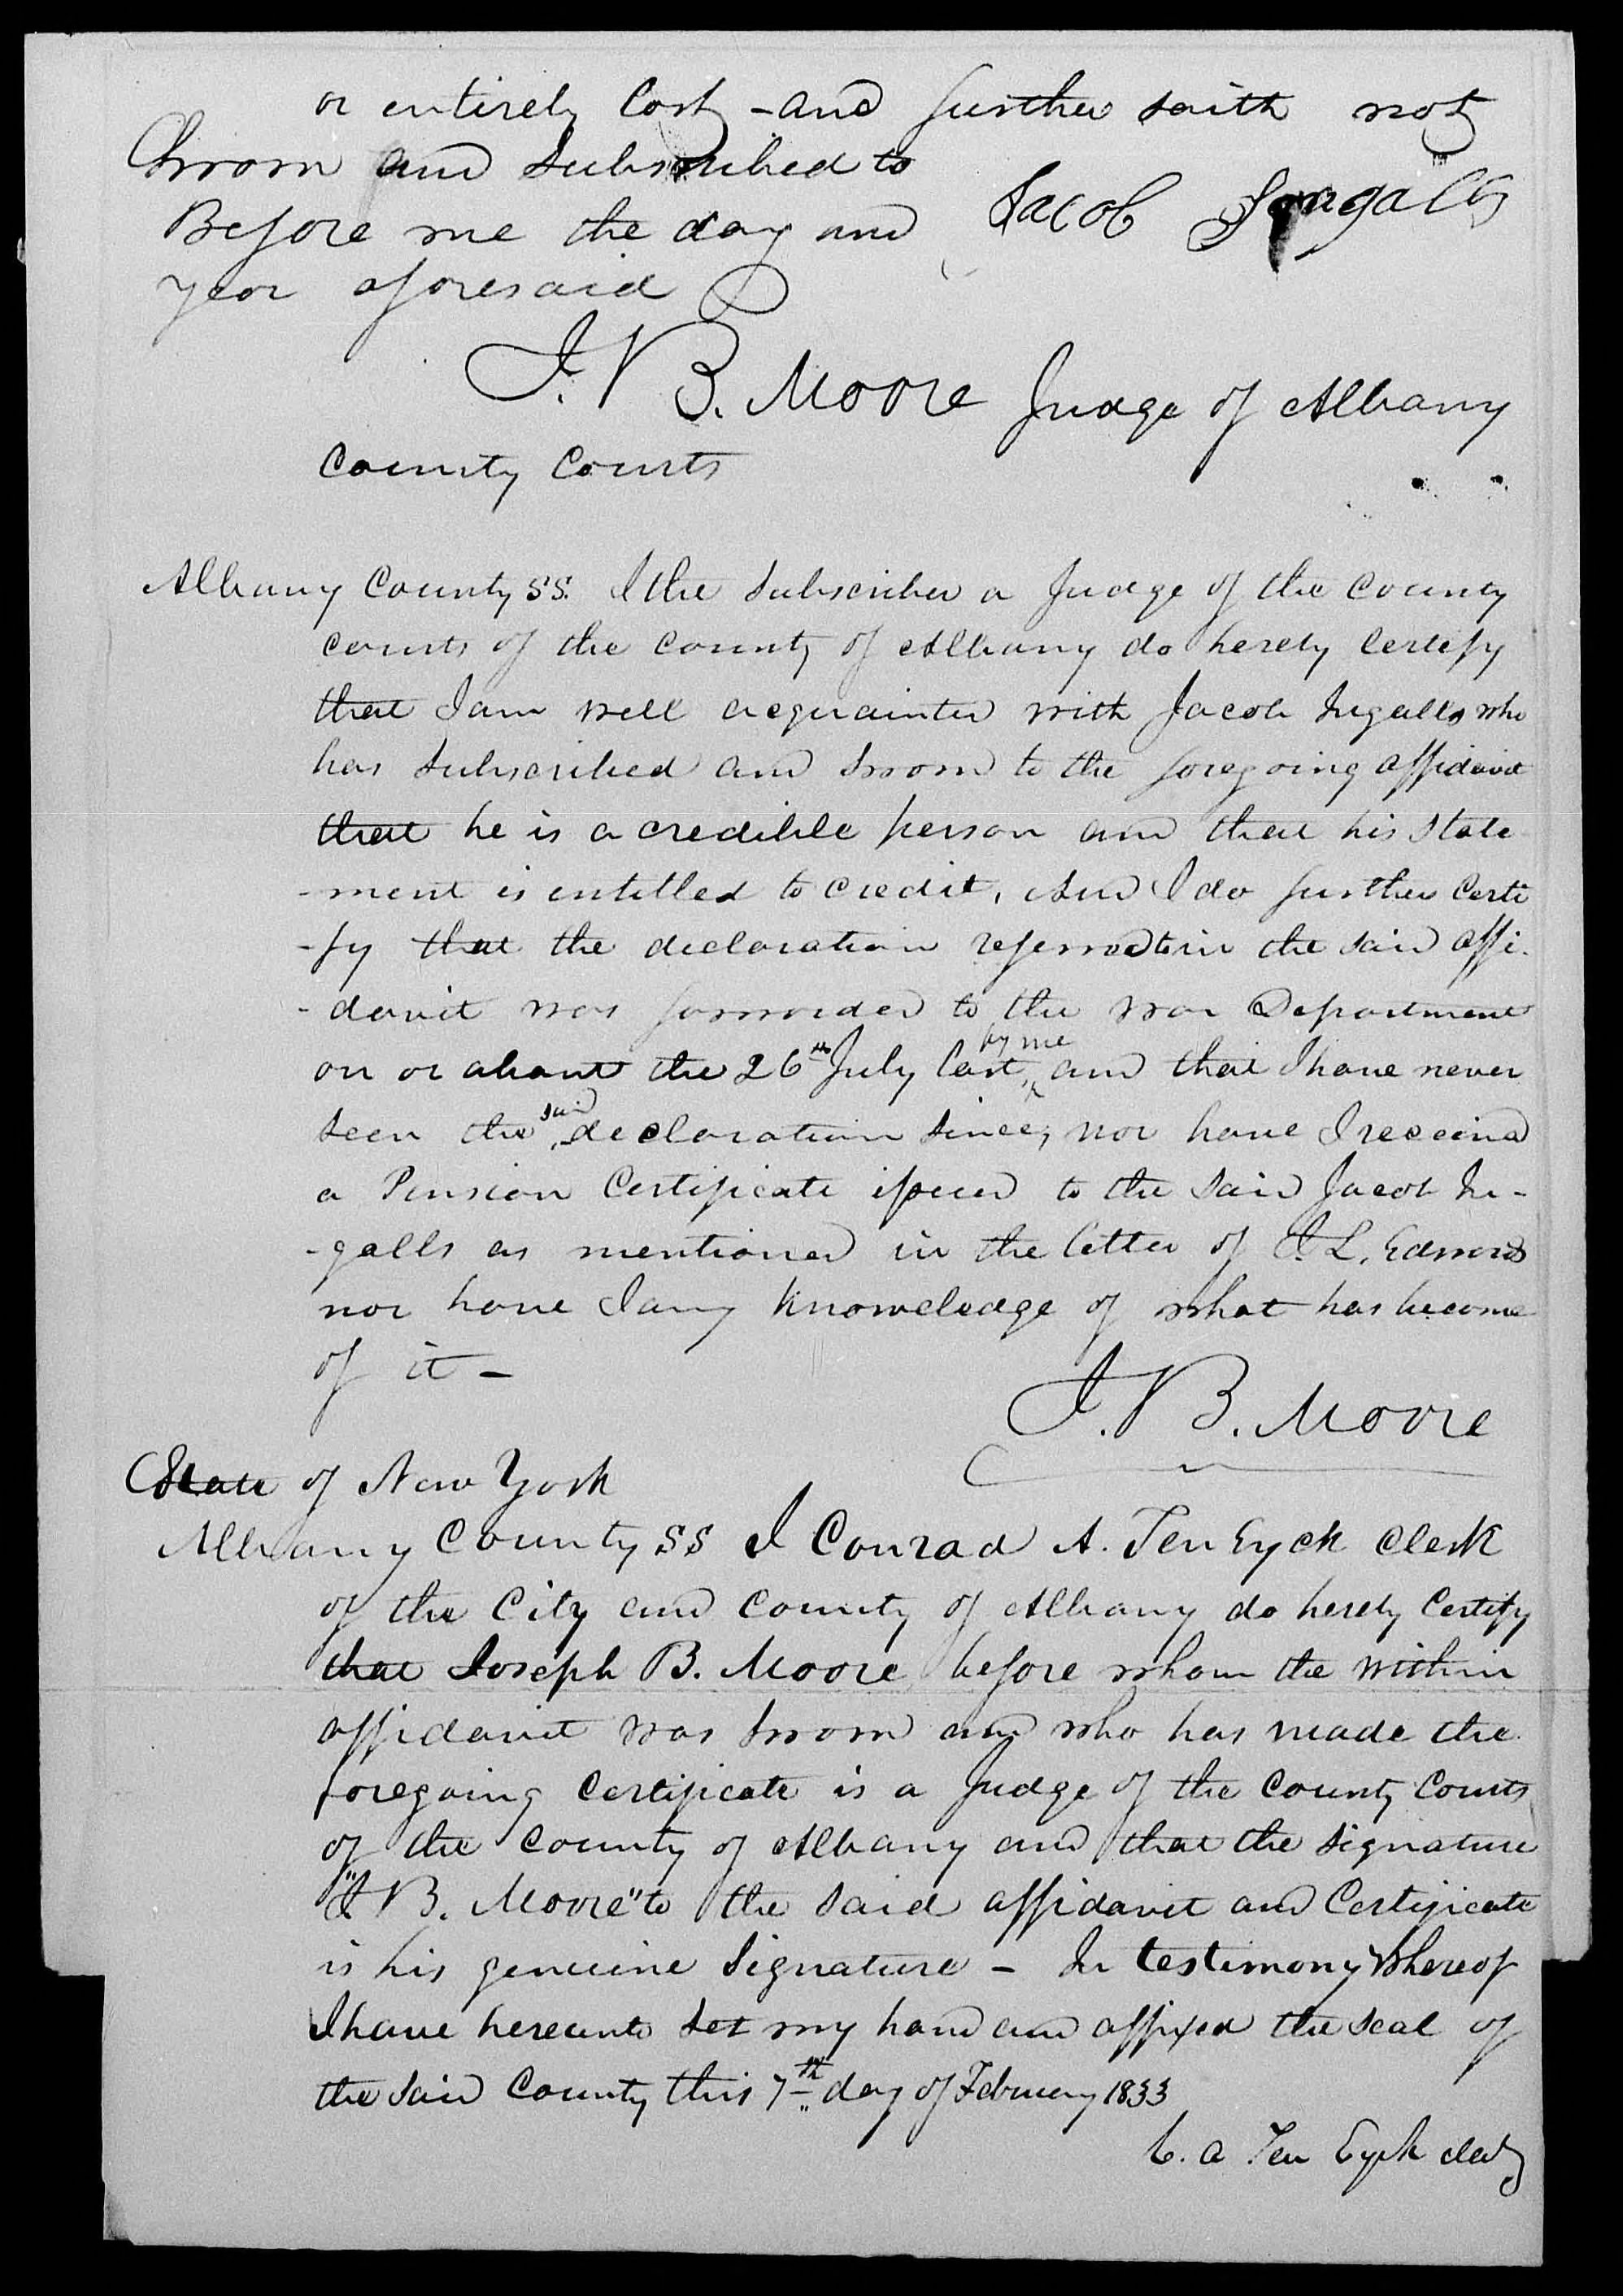 or entirely lost - and further saith not
Sworn and Subscribed to
Before me the day and
year aforesaid
Jacob Ingalls
J. B. Moore Judge of Albany
County Courts
Albany County SS. I the Subscriber a Judge of the County
courts of the County of Albany do hereby Certify
that I am well acquainted with Jacob Ingalls who
has Subscribed and Sworn to the foregoing affidavit
that he is a credible person and that his State
-ment is entitled to credit, And I do further Certi
-fy that the declaration referred to in the said affi-
-davit was forwarded to the War Department
on or about the 26th July last, by me and that I have never
seen the said declaration since, nor have I received
a Pension Certificate issued to the Said Jacob In-
-galls as mentioned in the letter of J. L. Edwards
nor have I any knowledge of what has become
of it -
J. B. Moore
State of New York
Albany County SS I Conrad A. Ten Eyck Clerk
of the City and County of Albany do hereby Certify
that Joseph B. Moore before whom the within
affidavit was Sworn and who has made the
foregoing Certificate is a Judge of the County Courts
of the County of Albany and that the Signature
"J B. Moore" to the said affidavit and Certificate
is his genuine Signature - In testimony Whereof
I have hereunto set my hand and affixed the Seal of
the Said County this 7th day of February 1833
C. A Ten Eyck clerk